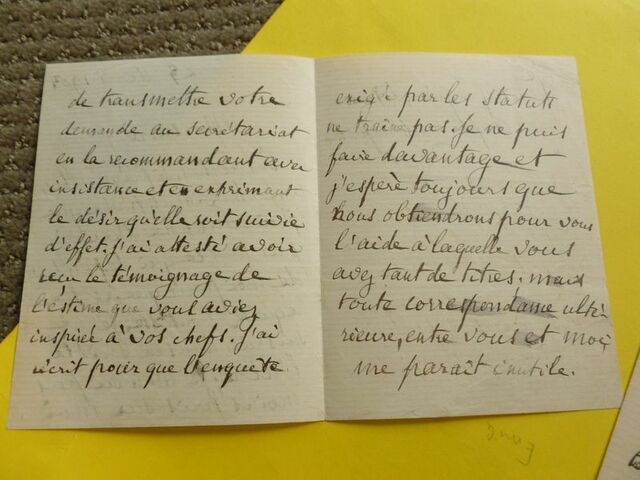 de transmettre votre
demande au secrétariat
en la recommandant avec
insistance et en exprimant
le désir qu'elle soit suivie
d'effet. j'ai attesté avoir
reçu le témoignage de
l'estime que vous aviez
inspirée à vos chefs. J'ai
écrit pour que l'enquête
exigé par les statuts
ne traine pas. Je ne puis
faire davantage et
j'espère toujours que
nous obtiendrons pour vous
l'aide à laquelle vous
avez tant de titres. mais
toute correspondance ulté
rieure, entre vous et moi
me parait inutile.